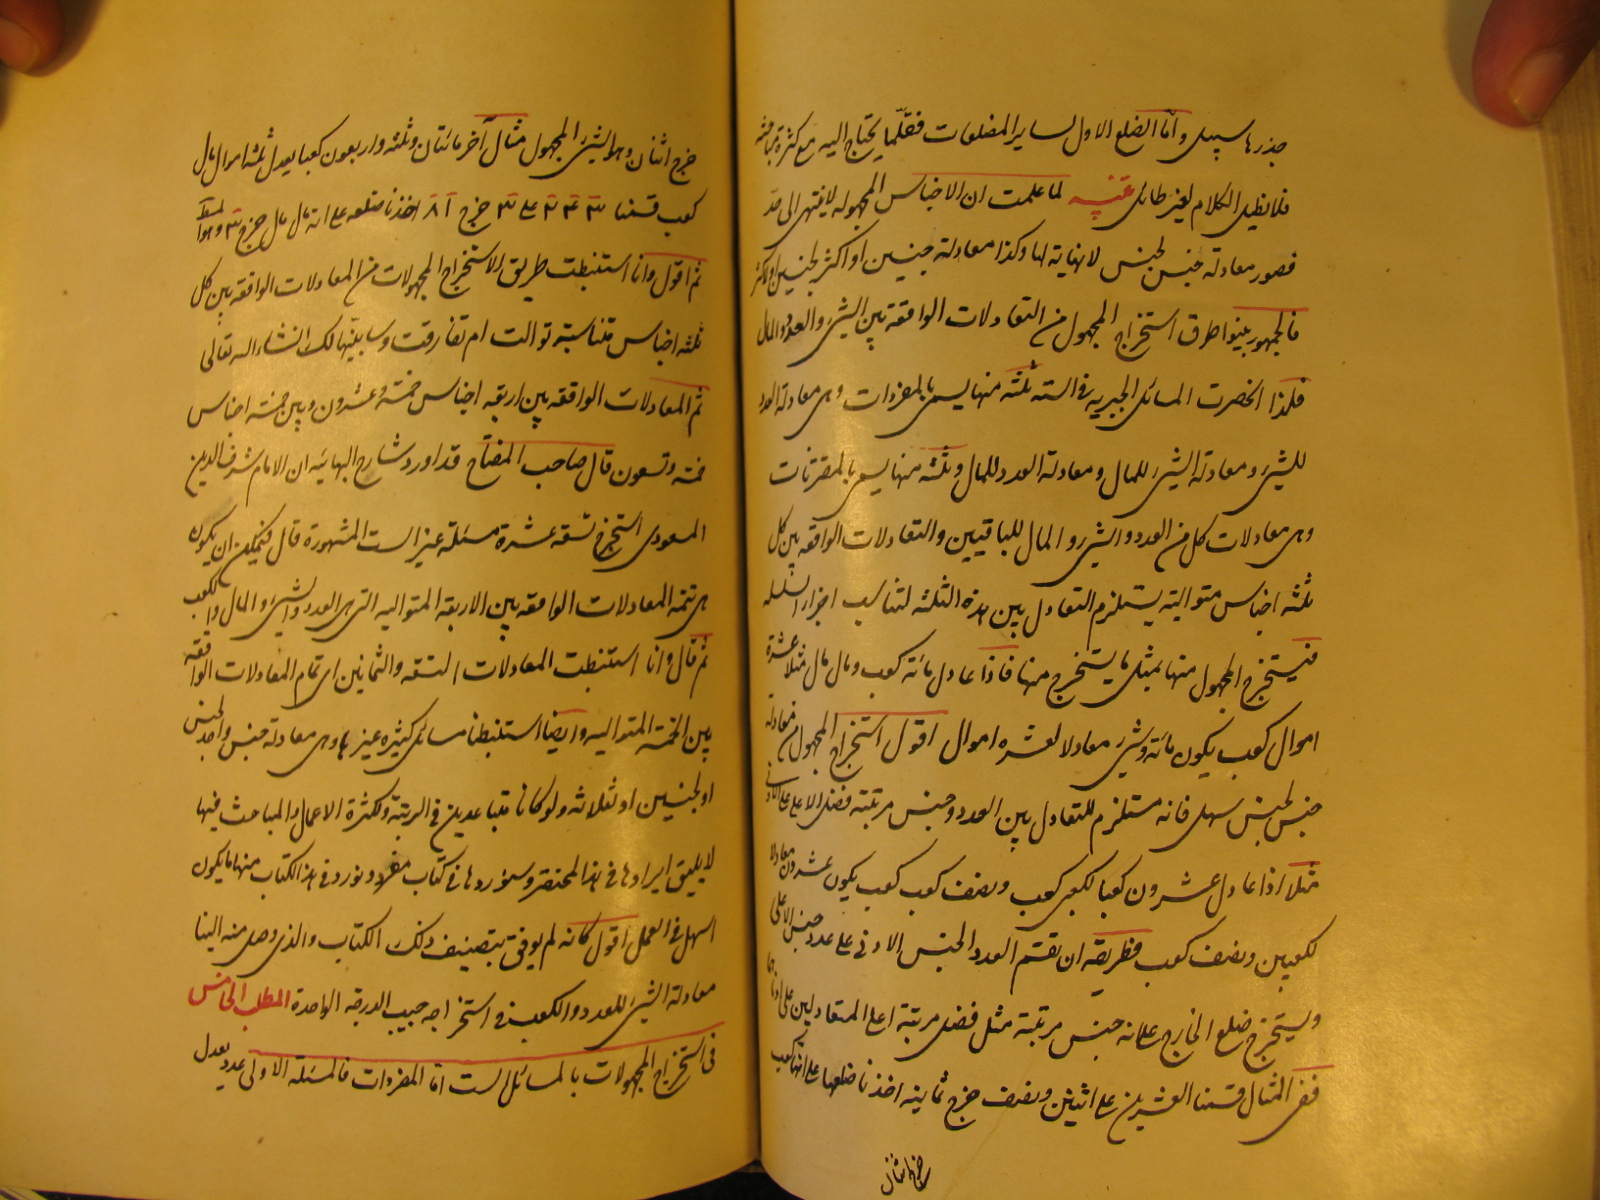 جذرها سبيل واما الضلع الاول لساير المضلعات فقلما يحتاج اليه مع كثرة مباحثه
فلا نطيل الكلام لغير طائل تنبيه لما علمت ان الاجناس المجهوله لا ينتهى الى حد
فصور معادلة جنس لجنس لا نهاية لها وكذا معادلة جنسين او اكثر لجنس او اكثر
فالجمهور بينوا طرق استخراج المجهول من التعادلات الواقعة بين الشئ والعدد والمال
فلذا انحصرت المسائل الجبريه فى الستة ثلثة منها يسمى بالمفردات وهى معادلة العدد
للشئ ومعادلة الشئ للمال ومعادلة العدد للمال وثلثة منها يسمى بالمقترنات
وهى معادلات كل من العدد والشئ والمال للباقيين والتعادلات الواقعه بين كل
ثلثه اجناس متواليه يستلزم التعادل بين هذه الثلثه لتناسب اجزاء السلسله
فيستخرج المجهول منها بمثل ما يستخرج منها فاذا عادل مائة كعب ومال مال مثلا عشرة
اموال كعب يكون مائة وشئ معادلا لعشره اموال اقول استخراج المجهول من معادلة
جنس لجنس سهل فانه مستلزم للتعادل بين العدد وجنس مرتبته فضل الاعلى على الادنى
مثلا اذا عادل عشرون كعبا لكعبى كعب ونصف كعب كعب يكون عشرون معادلا
لكعبين ونصف كعب فطريقه ان نقسم العدد الجنس الادنى على عدد جنس الاعلى
ويستخرج ضلع الخارج على انه جنس مرتبته مثل فضل مرتبة اعلى المتعادلين على ادناهما
ففى المثال قسمنا العشرين على اثنين ونصف خرج ثمانيه اخذنا ضلعها على انها كعب
خرج اثنان
خرج اثنان وهو الشئ المجهول مثال آخر مائتان وثلثه واربعون كعبا يعدل ثلثه اموال مال
كعب قسمنا ٢٤٣ على ٣ خرج ٨١ اخذنا ضلعه على انه مال مال خرج ٣ وهو المط
ثم اقول وانا استنبطت طريق الاستخراج المجهولات من المعادلات الواقعه بين كل
ثلثه اجناس متناسبة توالت ام تفارقت وسابينها لك انشاء الله تعالى
ثم المعادلات الواقعه بين اربعه اجناس خمسة وعشرون وبين خمسة اجناس
خمسه وتسعون قال صاحب المفتاح قد اورد شارح البهائيه ان الامام شرف الدين
المسعودى استخرج تسعه عشرة مسئلة غير الست المشهورة قال فيمكن ان يكون
هى تتمه المعادلات الواقعه بين الاربعة المتواليه التى هى العدد والشئ والمال والكعب
ثم قال وانا استنبطت المعادلات التسعه والثمانين اى تمام المعادلات الواقعة
بين الخمسة المتواليه وايضا استنبطنا مسائل كثيره غيرها وهى معادلة جنس واحد لجنس
او لجنسين او ثلاثه ولو كانا متباعدين فى الرتبة ولكثرة الاعمال والمباحث فيها
لا يليق ايرادها فى هذا المختصر وسنوردها فى كتاب مفرد ونورد فى هذا الكتاب منها ما يكون
اسهل فى العمل اقول كانه لم يوفق بتصنيف ذلك الكتاب والذى وصل منه الينا
معادلة الشئ للعدد والكعب فى استخراجه جيب الدرجه الواحدة المطلب الخامس
فى استخراج المجهولات بالمسائل الست اما المفردات فالمسئلة الاولى عدد يعدل